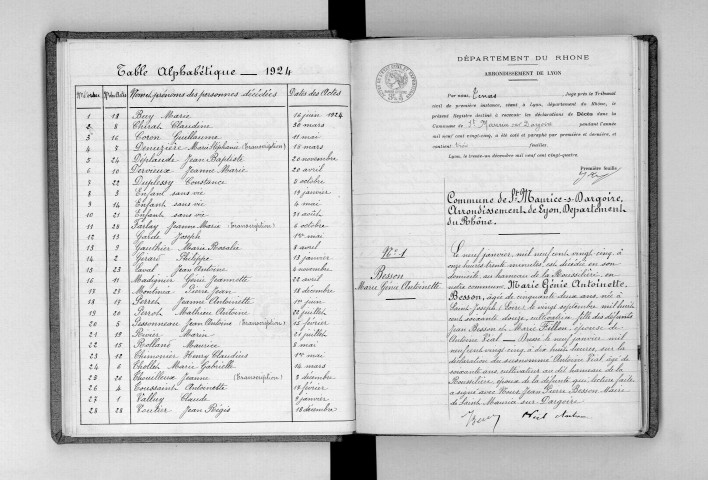 Table Alphabétique — 1924
Nos d'ordre Nos des Actes Noms et prénoms des personnes décédées Dates des Actes
1 18 Buy Marie 16 juin 1924
2 8 Chirat Claudine 30 mars
3 16 Coron Guillaume 11 mai
4 7 Denuzière Marie Stéphanie (Transcription) 18 mars
5 24 Déplaude Jean Baptiste 20 novembre
6 10 Dervieux Jeanne Marie 20 avril
7 22 Duplessy Constance 5 octobre
8 3 Enfant sans vie 19 janvier
9 14 Enfant sans vie 4 mai
10 21 Enfant sans vie 31 août
11 Farlay Jeanne Marie (Transcription) 6 octobre
12 13 Galde Joseph 1er mai
13 9 Gauthier Marie Rosalie 8 avril
14 2 Girard Philippe 13 janvier
15 23 Laval Jean Antoine 8 novembre
16 11 Madignier Jeannette 22 avril
17 27 Montmea Pierre Jean 18 décembre
18 17 Perret Jeanne Antoinette 1er juin
19 20 Perrot Mathieu Antoine 22 juillet
20 5 Pissonneau Jean Antoine (Transcription) 15 février
21 19 Rivier Marie 21 juillet
22 15 Rolland Maurice 8 mai
23 12 Thimonier Henry Claudius 1er mai
24 6 Thollet Marie Gabrielle 14 mars
25 Thouilleux Jeanne (Transcription) 3 décembre
26 4 Toussaint Antoinette 12 février
27 1 Valluy Claude 9 janvier
28 28 Voulier Jean Régis 18 décembre
DÉPARTEMENT DU RHONE
ARRONDISSEMENT DE LYON
Par nous, Juge près le Tribunal
civil de première instance, séant à Lyon, département du Rhône, le
présent Registre destiné à recevoir les déclarations de Décès dans la
Commune de St Maurice sur Dargoire pendant l'année
mil neuf cent vingt-cinq, a été coté et paraphé par première et dernière, et
contient feuilles.
Lyon, le trente-un décembre mil neuf cent vingt-quatre
Première feuille
Commune de St Maurice-s-Dargoire,
Arrondissement de Lyon, Département
du Rhône.
No 1
Besson
Marie Génie Antoinette
Le neuf janvier, mil neuf cent vingt cinq, à
onze heures trente minutes, est décédée en son
domicile, au hameau de la Roussilière, en
notre commune, Marie Génie Antoinette
Besson, âgée de cinquante deux ans, née à
Saint Joseph (Loire) le vingt septembre mil huit
cent soixante douze, cultivatrice, fille des défunts
Jean Besson et Marie Fillon, épouse de
Antoine Vial. — Dressé le neuf janvier, mil
neuf cent vingt cinq à dix huit heures, sur la
déclaration du susnommé Antoine Vial âgé de
soixante ans, cultivateur au dit hameau de la
Roussilière, époux de la défunte, qui, lecture faite
a signé avec Nous Jean Pierre Besson Maire
de Saint Maurice sur Dargoire.